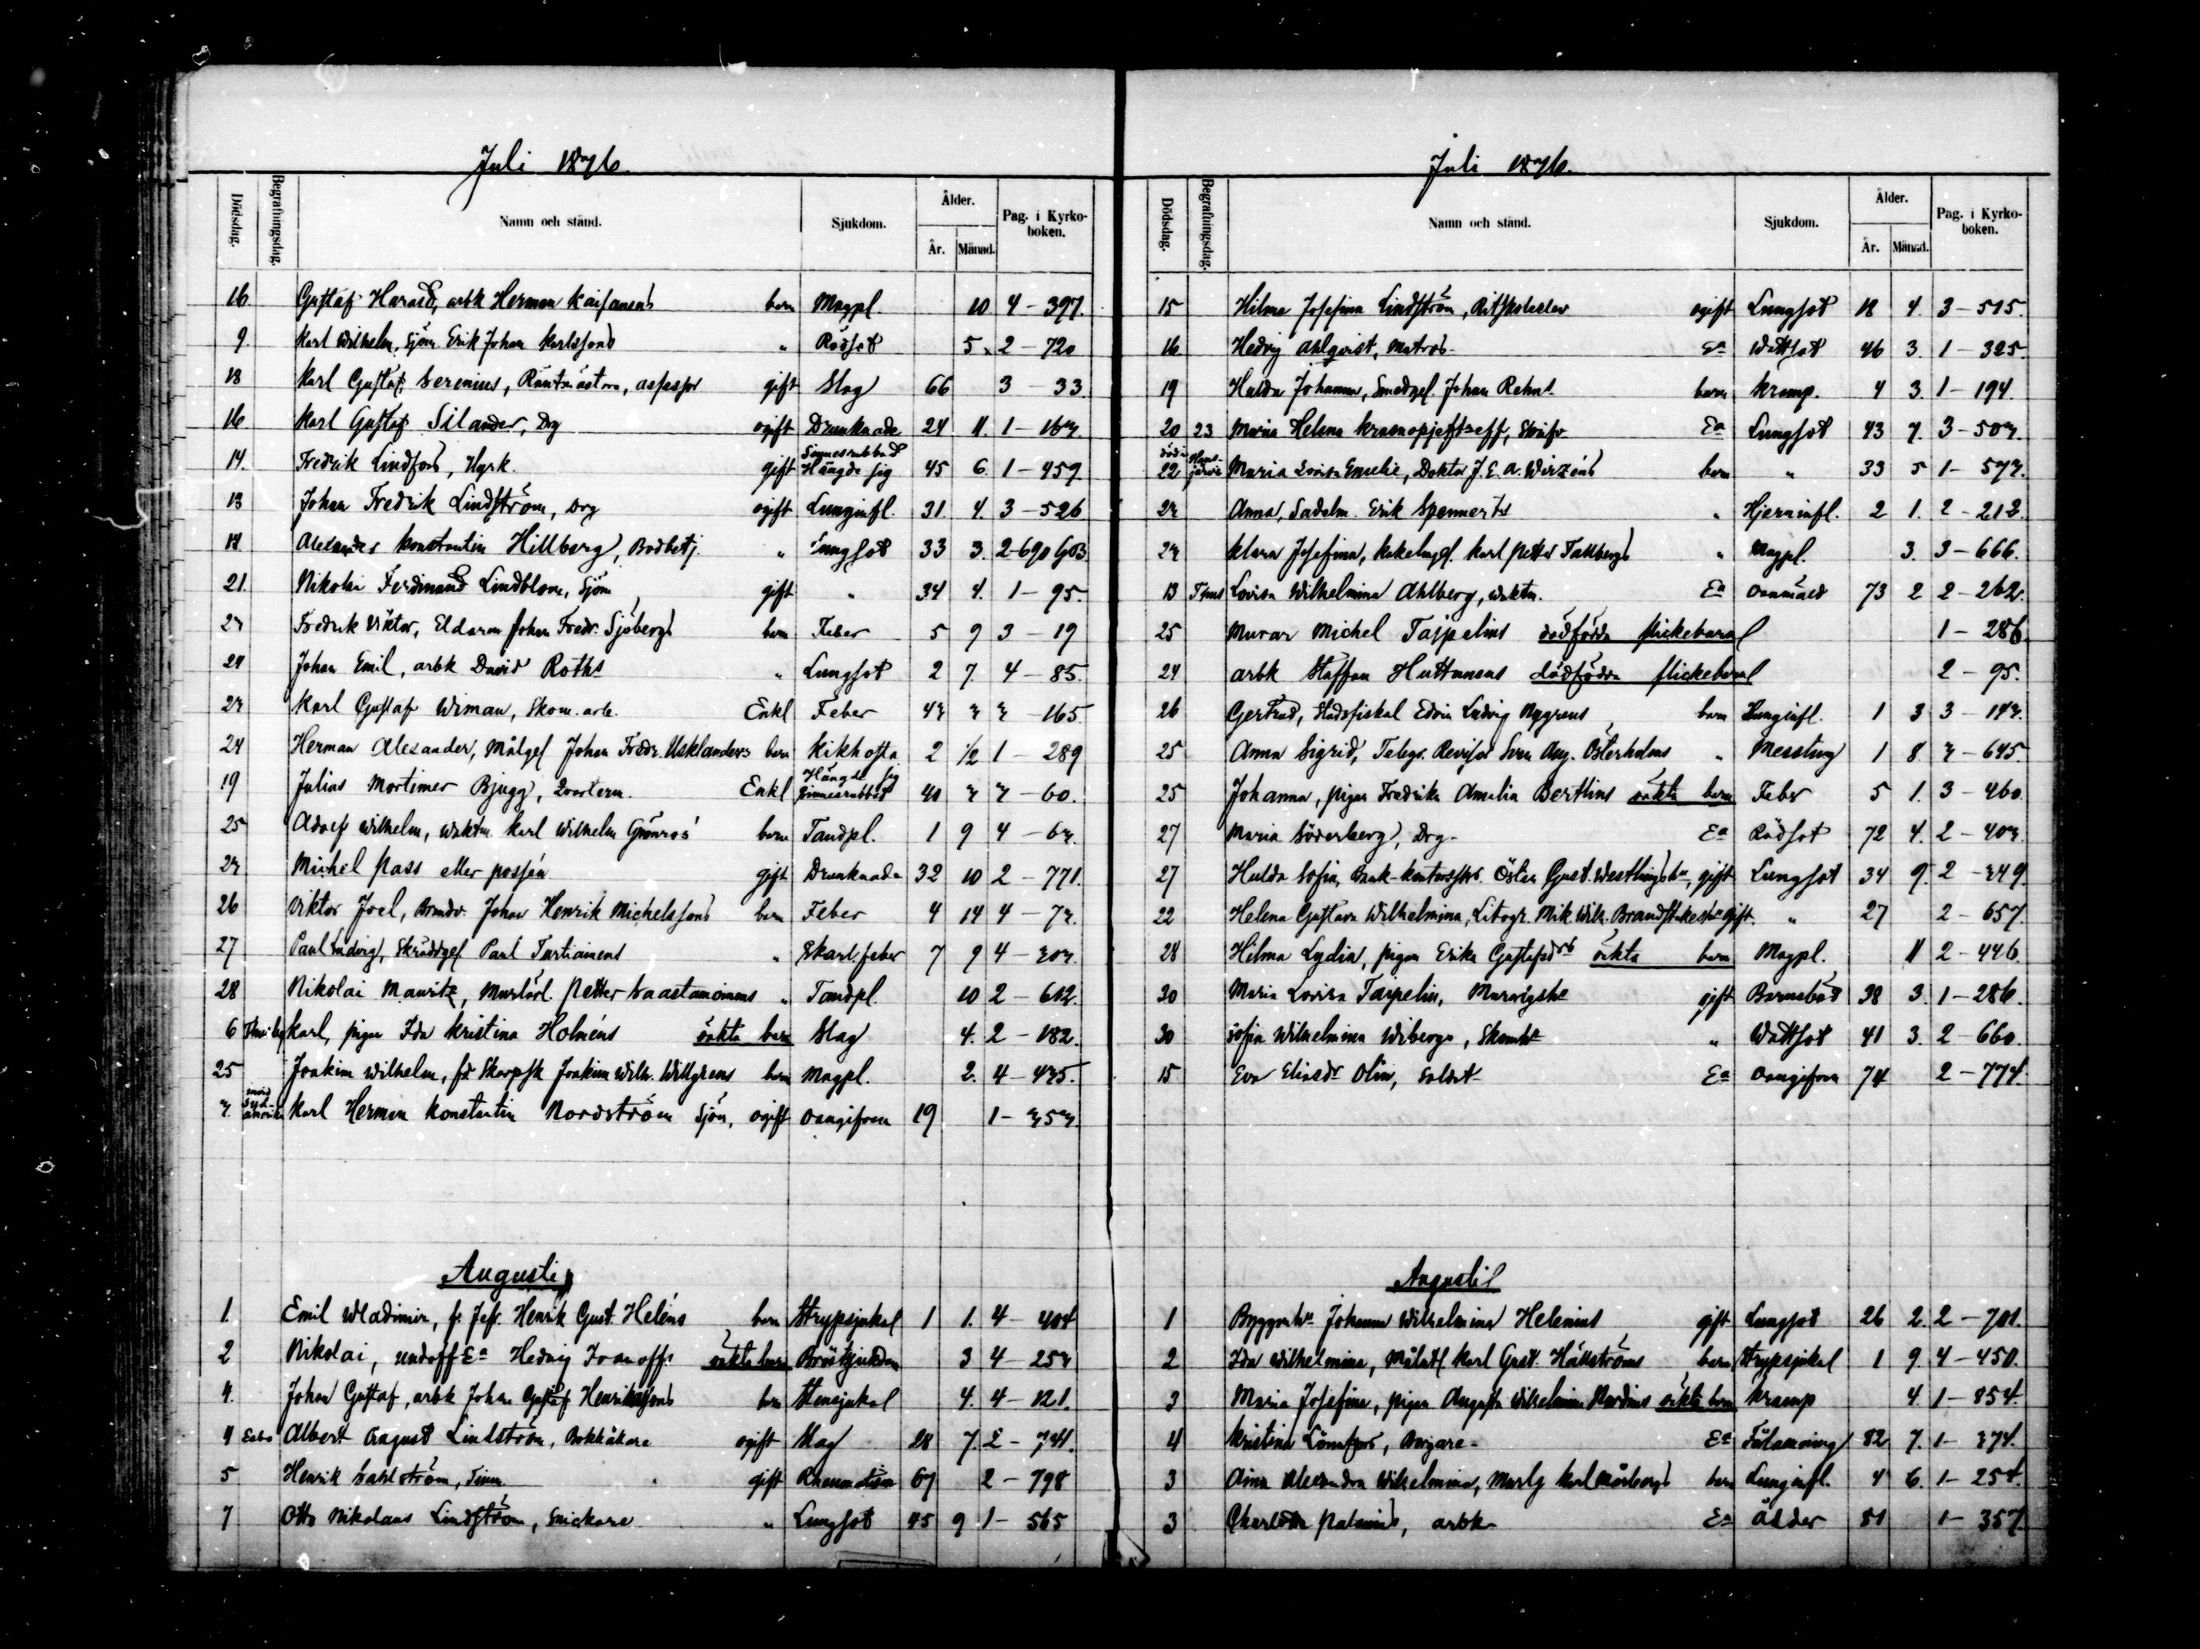 Juli 1876.
Dödsdag. Begrafningsdag. Namn och stånd. Sjukdom. Ålder. År. Månad. Pag. i Kyrko-boken.
16 Gustaf Harald, arbk Herman Kaifanens barn Magpl. 10 4-397.
9 Karl Wilhelm, Sjöm Erik Johan Karlssons " Rödsot 5. 2-720
18 Karl Gustaf Serenius, Räntmästare, assessor gift Slag 66 3-33.
16 Karl Gustaf Silander, Drg ogift Drunknade 24 11. 1-167.
14. Fredrik Lindfors, Hyrk. gift Sinnesrubbad Hängde sig 45 6. 1-459.
13 Johan Fredrik Lindström, Drg ogift Lunginfl. 31. 4. 3-526
Alexander Konstantin Hillberg, Bodbetj. " Lungsot 33 3. 2-690
21. Nikolai Ferdinand Lindblom, Sjöm gift " 34 4. 1-95.
Fredrik Viktor, Eldaren Johan Fredr. Sjöbergs barn Feber 5 9 3-19
24 Johan Emil, arbk David Roths " Lungsot 2 7. 4-85.
Karl Gustaf Wiman, Skom. arb. Enkl Feber 165.
24 Herman Alexander, Målgel Johan Fredr. Usklanders barn Kikhosta 2 1/2 1-289
19 Julius Mortimer Bjugg, Enkl Hängde sig Sinnesrubbad 40 60.
25 Adolf Wilhelm, Waktm. Karl Wilhelm Grönroos barn Tandpl. 1 9 4-67.
Michel Pass eller possén gift Drunknade 32 10 2-771.
26 Viktor Joel, Brmdv. Johan Henrik Michelssons barn Feber 4 14 4-77.
27 Paul Ludvig, Skräddgel. Paul Turtiainens " Skarl. feber 7 9 4-
28 Nikolai Mauritz, Murlärl. Petter Saastamoinens " Tandpl. 10 2-612.
6 Karl, pigan Ida Kristina Holméns oäkta barn Slag 4. 2-182.
25 Joakim Wilhelm, fd Skarpsk Joakim Wilh. Willgrens barn Magpl. 2. 4-475.
7. Karl Herman Konstantin Nordström Sjöm, ogift Oangifven 19 1-757.
Augusti
1. Emil Wladimir, Henrik Gust. Heléns barn Strypsjukal 1 1. 4-404
2 Nikolai, undoff Ea Hedvig Ivanoffs oäkta barn Bröstsjukdom 3 4-257
4. Johan Gustaf, arbk Johan Gustaf Henrikssons barn 4. 4-121.
4 Esbo Albert August Lindström, Bokhålare ogift Slag 28 7. 2-741.
5 Henrik Sahlström, Tim gift Rheumatism 67 2-798
7 Otto Nikolaus Lindström, Snickare " Lungsot 45 9 1-565
Juli 1876.
Dödsdag. Begrafningsdag. Namn och stånd. Sjukdom. Ålder. År. Månad. Pag. i Kyrko-boken.
15 Hilma Josefina Lindström, Ritskoleelev ogift Lungsot 18 4. 3-515.
16 Hedvig Ahlqvist, Matros- Ea Wattsot 46 3. 1-325.
19 Hulda Johanna, Smedgel. Johan Rehns barn Kramp. 4 3. 1-194.
20 23 Maria Helena Ea Lungsot 43 7. 3-507.
22 Maria Lovisa Emelie, Doktor J. E. A. Wirzéns barn " 33 5 1-577.
Anna, Sadelm. Erik Spennerts " Hjerninfl. 2 1. 2-212.
Klara Josefina, Kakelmgel. Karl Petter Tallbergs " Magpl. 3. 3-666.
13 Lovisa Wilhelmina Ahlberg, Waktm. Ea Oanmäld 73 2 2-262.
25 Murar Michel Taipelius dödfödda flickebarn 1-286
24 arbk Staffan Huttunens dödfödda flickebarn 2-95.
26 Gertrud, Stadsfiskal Edvin Ludvig Nygrens barn Lunginfl. 1 3 3-147.
25 Anna Sigrid, Telegr. Revisor Sven Aug. Österholms " Messling 1 8. 7-645.
25 Johanna, pigan Fredrika Amalia Bertlins oäkta barn Feber 5 1. 3-460.
27 Maria Söderberg, Drg- Ea Rödsot 72 4. 2-407.
27 Hulda Sofia, Bank-kontorsskr. Östen Gust. Westlings hu, gift Lungsot 34 9. 2-749.
22 Helena Gustava Wilhelmina, Litogr. Nik. Wilh. Brandstakes hu gift. " 27 2-657.
28 Hilma Lydia, pigan Erika Gustafsdrs oäkta barn Magpl. 11 2-446.
30 Maria Lovisa Taipelius, gift Barnsbörd 38 3. 1-286.
30 Sofia Wilhelmina Wiberg, " Wattsot 41 3. 2-660.
15 Eva Eliasdr Olin, Soldat- Ea Oangifven 74 2-774.
Augusti
1 Johanna Wilhelmina Helenius gift Lungsot 26 2. 2-701.
2 Ida Wilhelmina, Karl Gust. Hällströms barn Strypsjukal 1 9. 4-450.
3 Maria Josefina, pigan Augusta Wilhelmina Nordins oäkta barn Kramp 4. 1-854.
4 Kristina Lönnfors, Borgare- Ea 82 7. 1-374.
3 Aina Alexandra Wilhelmina, barn Lunginfl. 4 6. 1-254.
3 Charlotta Palenius, arbk- Ea Ålder 81 1-357.